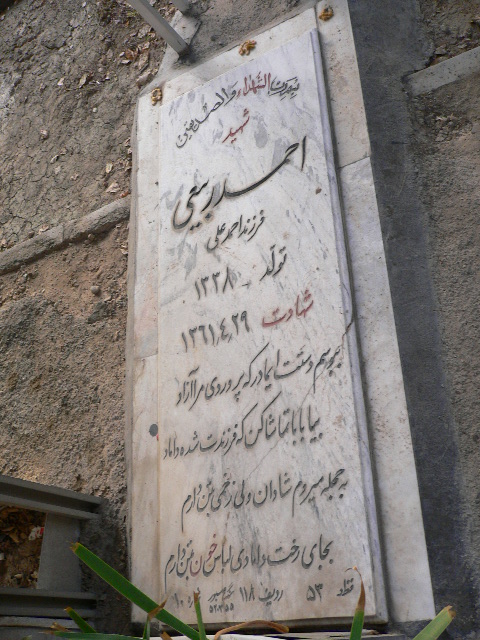 بسم رب الشهداء والصدیقین
شهید
احمد ربیعی
فرزند احمد علی
تولد ۱۳۳۸
شهادت ۱۳۶۱٫۴٫۲۹
ببوسم دستت ای مادر که پروردی مرا آزاد
بیا بابا تماشا کن که فرزندت شده داماد
به حجله میروم شادان ولی زخمی بتن دارم
بجای رخت دامادی لباس خون بتن دارم
قطعه ۵۳ ردیف ۱۱۸ ۱۰